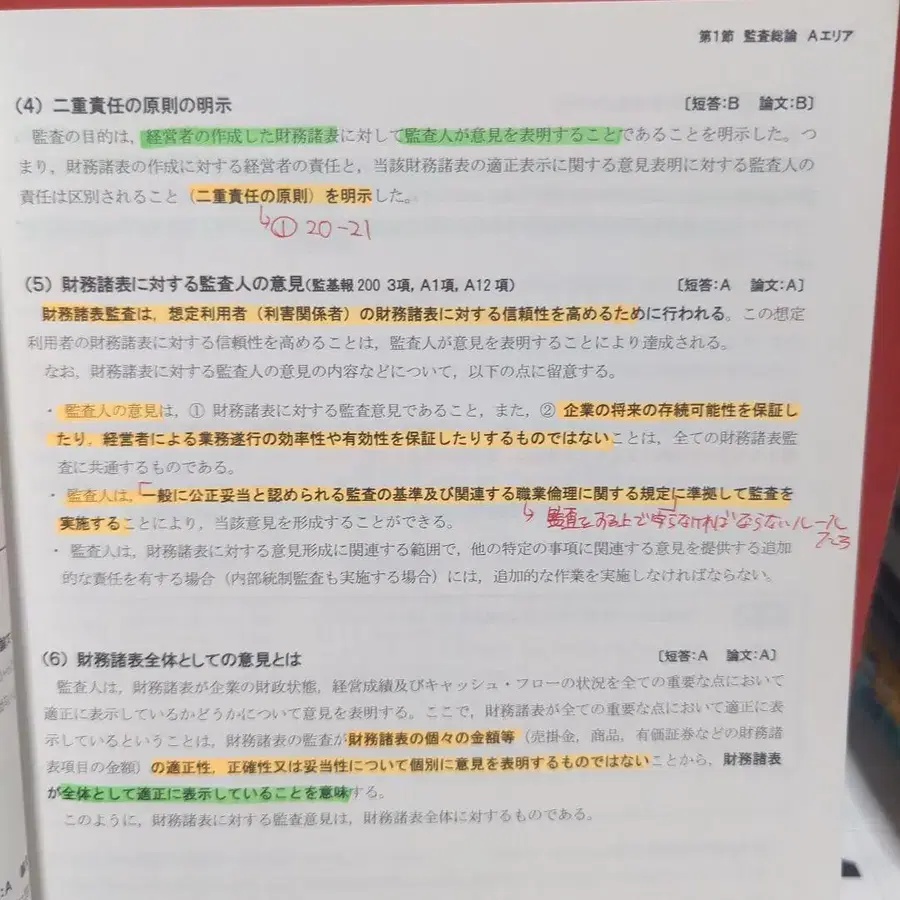 第1節 監査総論 Aエリア
(4) 二重責任の原則の明示 〔短答:B 論文:B〕
監査の目的は，経営者の作成した財務諸表に対して監査人が意見を表明することであることを明示した。つ
まり，財務諸表の作成に対する経営者の責任と，当該財務諸表の適正表示に関する意見表明に対する監査人の
責任は区別されること（二重責任の原則）を明示した。
↳① 20-21
(5) 財務諸表に対する監査人の意見(監基報200 3項, A1項, A12項) 〔短答:A 論文:A〕
財務諸表監査は，想定利用者（利害関係者）の財務諸表に対する信頼性を高めるために行われる。この想定
利用者の財務諸表に対する信頼性を高めることは，監査人が意見を表明することにより達成される。
なお，財務諸表に対する監査人の意見の内容などについて，以下の点に留意する。
・監査人の意見は，① 財務諸表に対する監査意見であること，また，② 企業の将来の存続可能性を保証し
たり，経営者による業務遂行の効率性や有効性を保証したりするものではないことは，全ての財務諸表監
査に共通するものである。
・監査人は，「一般に公正妥当と認められる監査の基準及び関連する職業倫理に関する規定」に準拠して監査を
実施することにより，当該意見を形成することができる。
↳ 監査をする上で守らなければならないルール
2-3
・監査人は，財務諸表に対する意見形成に関連する範囲で，他の特定の事項に関連する意見を提供する追加
的な責任を有する場合（内部統制監査も実施する場合）には，追加的な作業を実施しなければならない。
(6) 財務諸表全体としての意見とは 〔短答:A 論文:A〕
監査人は，財務諸表が企業の財政状態，経営成績及びキャッシュ・フローの状況を全ての重要な点において
適正に表示しているかどうかについて意見を表明する。ここで，財務諸表が全ての重要な点において適正に表
示しているということは，財務諸表の監査が財務諸表の個々の金額等（売掛金，商品，有価証券などの財務諸
表項目の金額）の適正性，正確性又は妥当性について個別に意見を表明するものではないことから，財務諸表
が全体として適正に表示していることを意味する。
このように，財務諸表に対する監査意見は，財務諸表全体に対するものである。
:A